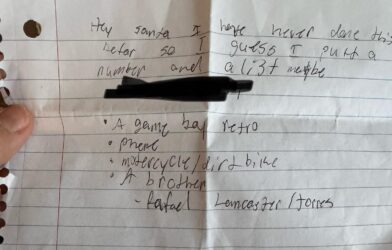 Hey santa I have never done this
befor so I guess I put a
number and a list maybe
• A game boy retro
• phone
• motercycle/dirt bike
• A brother
- Rafael Lancaster/torres